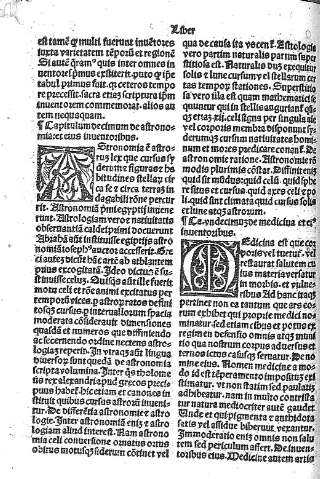 Liber
est tamē ꝙ multi fuerunt inuētores
iuxta varietatem tēporū et regionū
Si autē q̄ram⁹ quis inter omnes in
uentores primus exstiterit. puto ꝙ ipe
tubal primus fuit. qr cetero tempo
re precessit. sacra enim scriptura ipm
inuentorem commemorat. alios au
tem nequaquam.
¶ Capitulum decimum de astrono
mia et eius inuentoribus.
Astronomia ē astro-
rum lex que cursus sy
derum et figuras et ha
bitudines stellarū cir
ca se et circa terrā in
dagabili rōne percur
rit. Astronomiā primi egyptij inuene
runt. Astrologiam vero et natiuitatis
obseruantiā caldei primi docuerunt
Abrahā aūt instituisse egiptijs astro
nomiā ioseph⁹ auctor asserit. Gre
ci autē dicūt hāc artē ab athlante
pius excogitatā. Ideo dictus ē su
stinuisse celum. Quisquis aūt ille fuerit
motu celi et rōne animi excitatus per
temporū vices. p astrorum ratos defini
tosq cursus. p interuallorum spacia
moderata cōsiderauit dimensiones
quasdā et numeros que diffiniendo
ac secernendo ordine nectens astro
logiam reperit. In vtraq aūt lingua
diuersorum sunt quedā de astronomia
scripta volumina. Inter q̄s ptholome
us rex alexandrie apud grecos preci
puus habetur. hic etiam et canones in
stituit quibus cursus astrorū inueni-
tur. De differētia astronomie et astro
logie. Inter astronomiā enim et astro
logiam aliud interest. Nam astrono
mia celi conuersione ortus
obitus motusq siderum cōtinet vel
qua de causa ita vocentur. Astrologia
vero partim naturalis partim super
stitiosa est. Naturalis dum exequitur
solis et lune cursum vel stellarum cer
tas temporum stationes. Superstitio
sa vero illa est quam mathematici se
quuntur qui in stellis auguriantur
que etiam. xij. celi signa per singula aie
vel corporis membra disponunt sy-
derumq cursu natiuitates homi-
num et mores predicare conantur. De
astronomie ratione. Astronomie rō
modis plurimis cōstat. Diffinit enim
quid sit mūdus. quid celū. quid sphe
re situs et cursus. quid axis celi et po
li. quid sint climata quid cursus solis
et lune atq astrorum.
¶ Ca. vndecimum de medicina et ei⁹
inuentoribus.
Medicina est que cor
poris vel tuetur. vel
restaurat salutem cu
ius materia versatur
in morbis. et vulne-
ribus Ad hanc itaq
pertinet non ea tantum que ars eo-
rum exhibet qui proprie medici no-
minātur sed etiam cibus et potus et
tegimen defensio omnis atq muni
tio qua nostrum corpus aduersus ex
ternos ictus casusq seruatur. De no
mine eius. Nomen medicine a mo-
do id est temperamento impositum exi
stimatur. vt non statim sed paulatim
adhibeatur. nam in multo contrista
tur natura mediocriter autē gaudet
Unde et qui pigmenta et anthidota
satis vel assidue biberunt. vexantur.
Immoderatio enim omnis non salu
tem sed periculum affert. De inuen-
toribus eius. Medicine autem artis